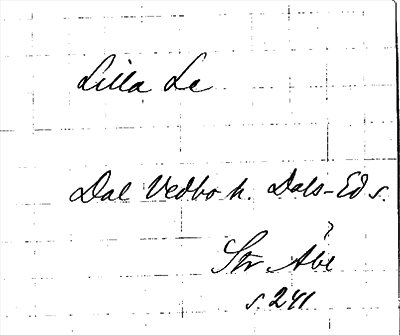 Lilla Le
Dal Vedbo h. Dals-Ed s.
s. 241